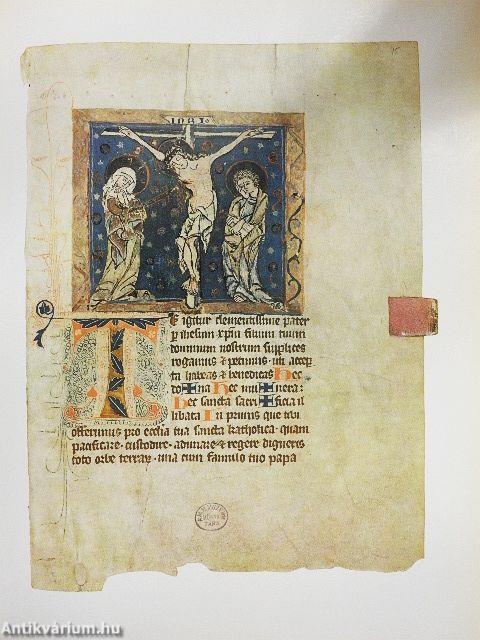 INRI
Te igitur clementissime pater
p ihesum xpm filium tuum
dominum nostrum supplices
rogamus & petimus uti accep
ta habeas & benedicas hec
do na hec mu nera
hec sancta sacri ficia il
libata In primis que tibi
offerimus pro ecclia tua sancta katholica quam
pacificare custodire adunare & regere digneris
toto orbe terrar una cum famulo tuo papa
Antikvárium.hu